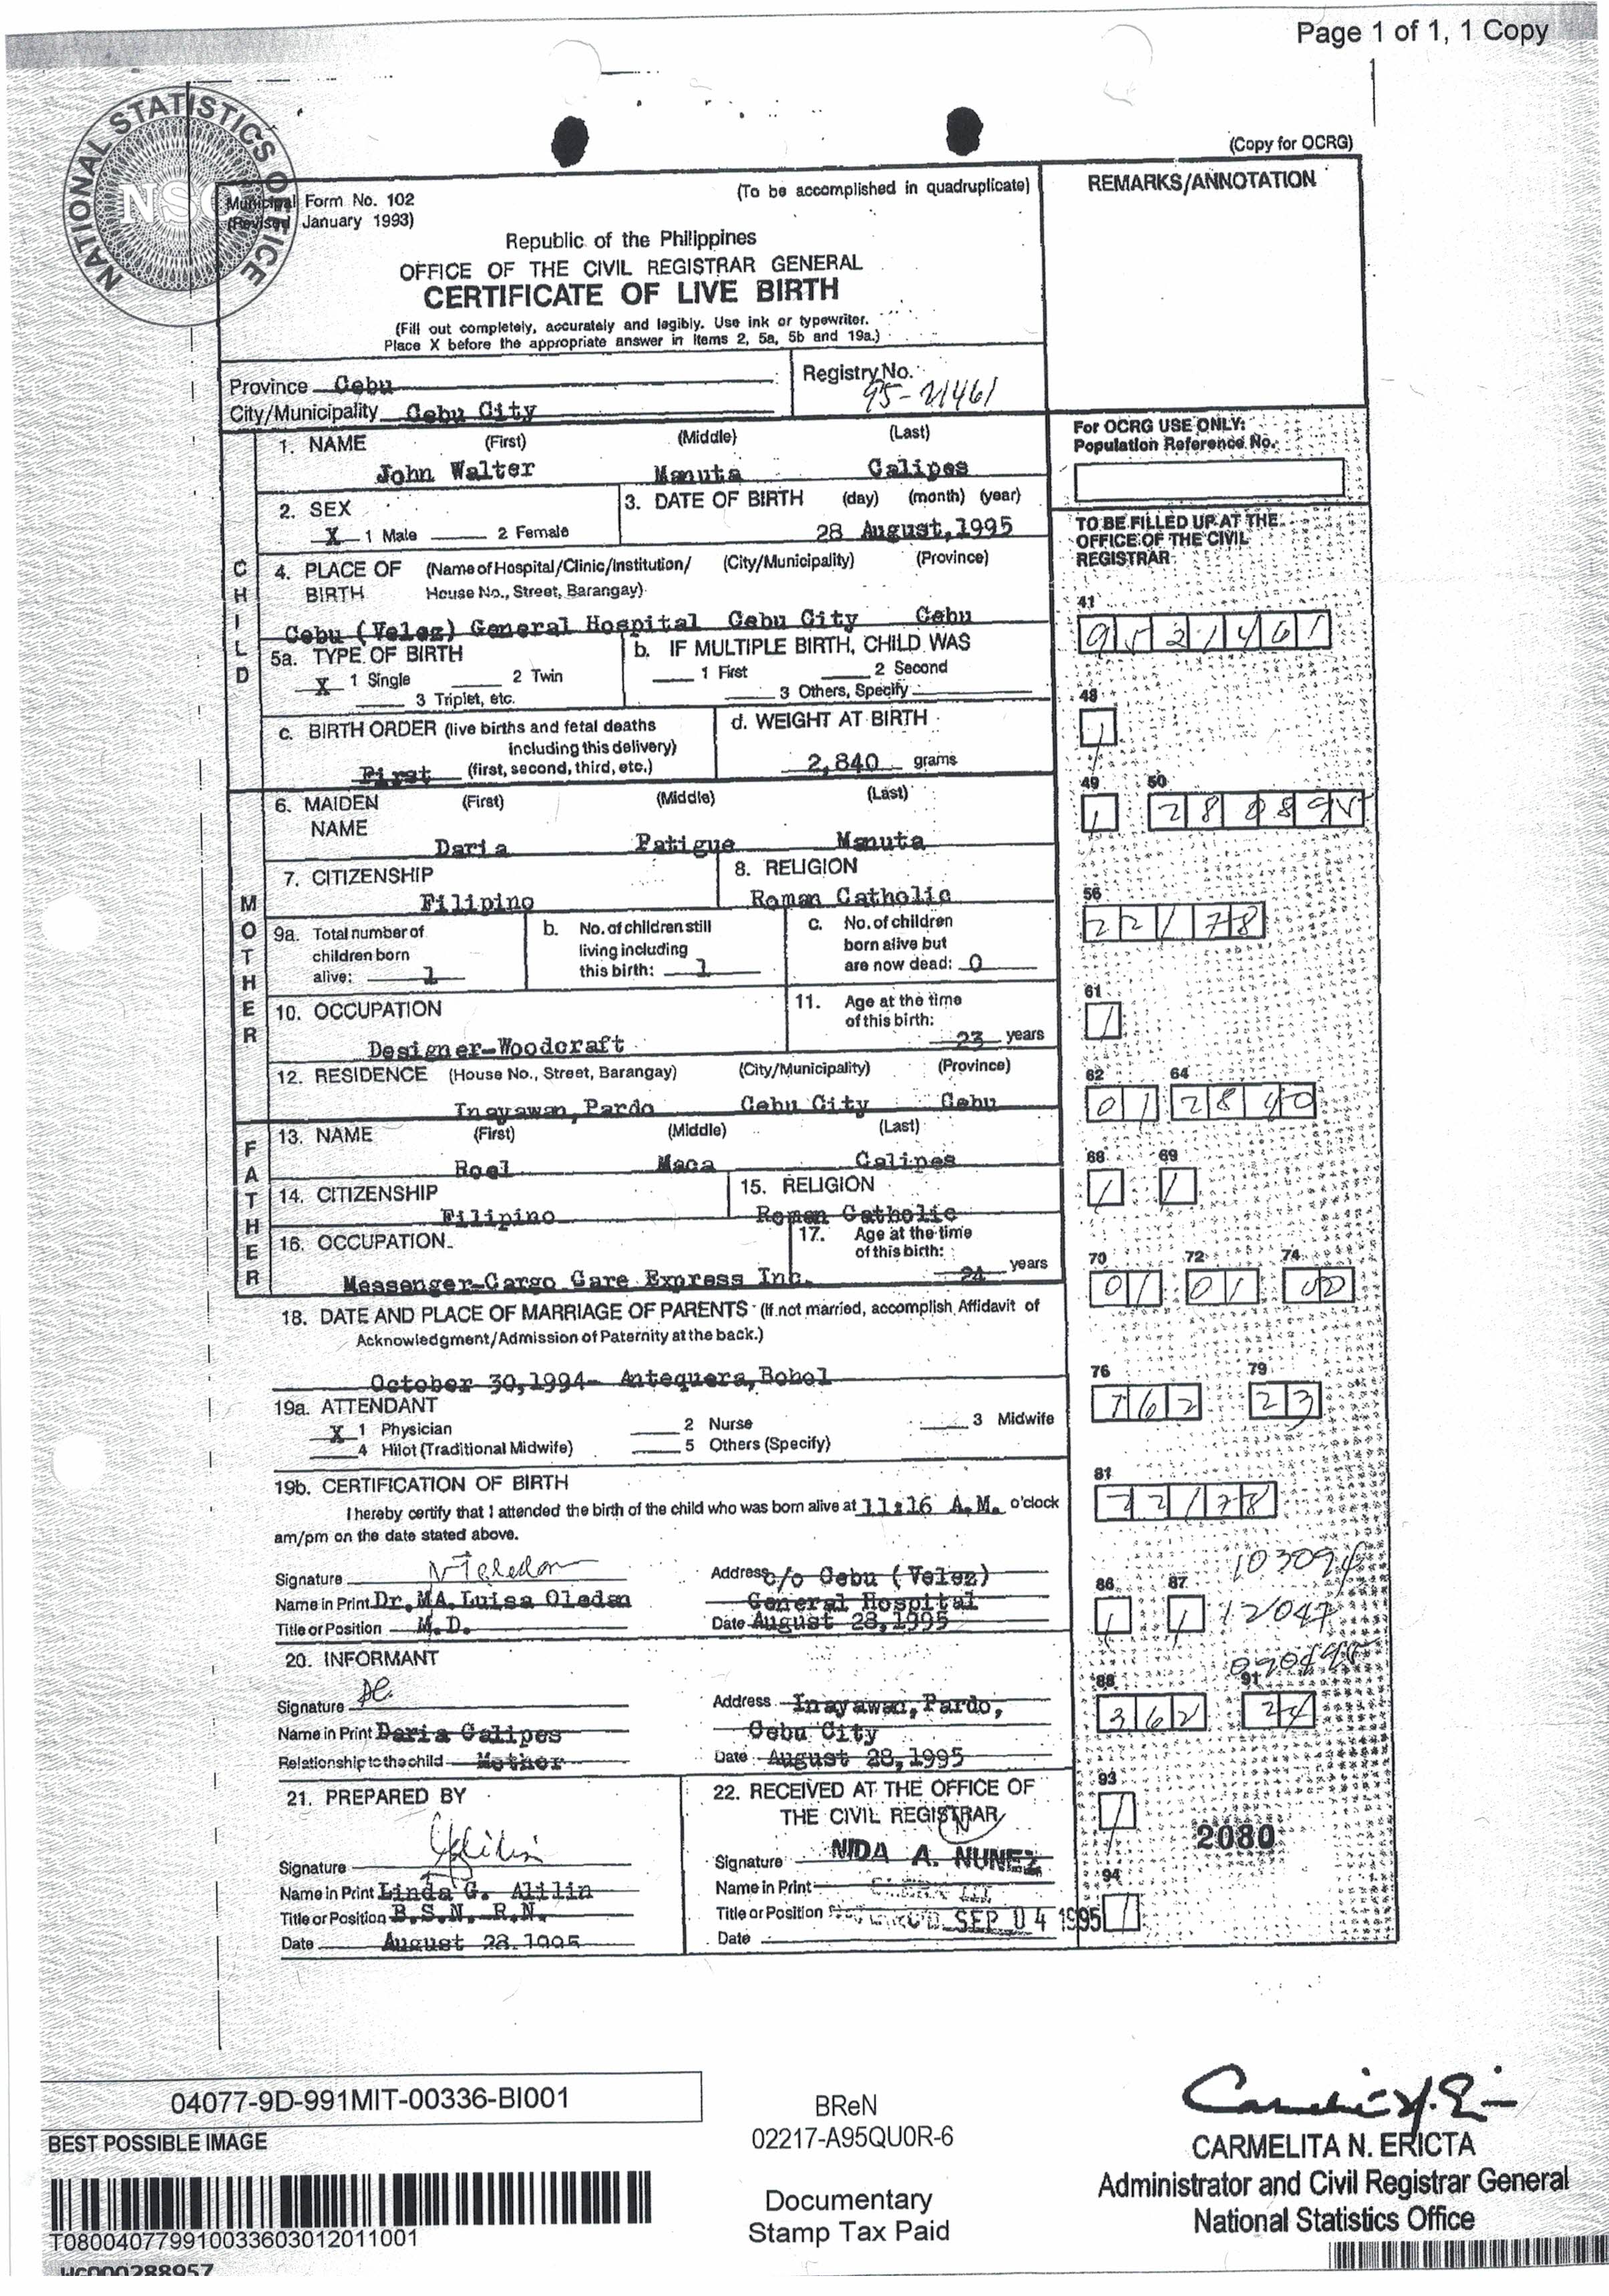 Page 1 of 1, 1 Copy
NATIONAL STATISTICS OFFICE
NSO
(Copy for OCRG)
Municipal Form No. 102
(To be accomplished in quadruplicate)
REMARKS/ANNOTATION
(Revised January 1993)
Republic of the Philippines
OFFICE OF THE CIVIL REGISTRAR GENERAL
CERTIFICATE OF LIVE BIRTH
(Fill out completely, accurately and legibly. Use ink or typewriter.
Place X before the appropriate answer in Items 2, 5a, 5b and 19a.)
Province Cebu
Registry No.
City/Municipality Cebu City
95-21461
For OCRG USE ONLY:
Population Reference No.
CHILD
1. NAME (First) (Middle) (Last)
John Walter Manuta Galipes
2. SEX
X 1 Male 2 Female
3. DATE OF BIRTH (day) (month) (year)
28 August, 1995
TO BE FILLED UP AT THE
OFFICE OF THE CIVIL
REGISTRAR
4. PLACE OF BIRTH (Name of Hospital/Clinic/Institution/ (City/Municipality) (Province)
House No., Street, Barangay)
Cebu (Velez) General Hospital Cebu City Cebu
41
9521461
5a. TYPE OF BIRTH
X 1 Single 2 Twin
3 Triplet, etc.
b. IF MULTIPLE BIRTH, CHILD WAS
1 First 2 Second
3 Others, Specify
48
1
c. BIRTH ORDER (live births and fetal deaths
including this delivery)
First (first, second, third, etc.)
d. WEIGHT AT BIRTH
2,840 grams
49 50
1 280895
MOTHER
6. MAIDEN NAME (First) (Middle) (Last)
Daria Fatigue Manuta
7. CITIZENSHIP
Filipino
8. RELIGION
Roman Catholic
56
22178
9a. Total number of
children born
alive: 1
b. No. of children still
living including
this birth: 1
c. No. of children
born alive but
are now dead: 0
61
1
10. OCCUPATION
Designer-Woodcraft
11. Age at the time
of this birth:
23 years
12. RESIDENCE (House No., Street, Barangay) (City/Municipality) (Province)
Inayawan, Pardo Cebu City Cebu
62 64
01 2840
FATHER
13. NAME (First) (Middle) (Last)
Roel Maca Galipes
68 69
1 1
14. CITIZENSHIP
Filipino
15. RELIGION
Roman Catholic
16. OCCUPATION
Messenger-Cargo Care Express Inc.
17. Age at the time
of this birth:
24 years
70 72 74
01 01 00
18. DATE AND PLACE OF MARRIAGE OF PARENTS (If not married, accomplish Affidavit of
Acknowledgment/Admission of Paternity at the back.)
October 30, 1994- Antequera, Bohol
76 79
762 23
19a. ATTENDANT
X 1 Physician 2 Nurse 3 Midwife
4 Hilot (Traditional Midwife) 5 Others (Specify)
19b. CERTIFICATION OF BIRTH
I hereby certify that I attended the birth of the child who was born alive at 11:16 A.M. o'clock
am/pm on the date stated above.
81
22178
103094
Signature
Name in Print Dr. MA. Luisa Oledan
Title or Position M.D.
Address c/o Cebu (Velez)
General Hospital
Date August 28, 1995
86 87
1 1 12047
20. INFORMANT
Signature
Name in Print Daria Galipes
Relationship to the child Mother
Address Inayawan, Pardo,
Cebu City
Date August 28, 1995
88 91
362 24
21. PREPARED BY
Signature
Name in Print Linda G. Alilin
Title or Position B.S.N. R.N.
Date August 28, 1995
22. RECEIVED AT THE OFFICE OF
THE CIVIL REGISTRAR
Signature NIDA A. NUNEZ
Name in Print
Title or Position SEP 04 1995
Date
93
1
2080
94
1
04077-9D-991MIT-00336-BI001
BEST POSSIBLE IMAGE
T080040779910033603012011001
BReN
02217-A95QU0R-6
Documentary
Stamp Tax Paid
CARMELITA N. ERICTA
Administrator and Civil Registrar General
National Statistics Office